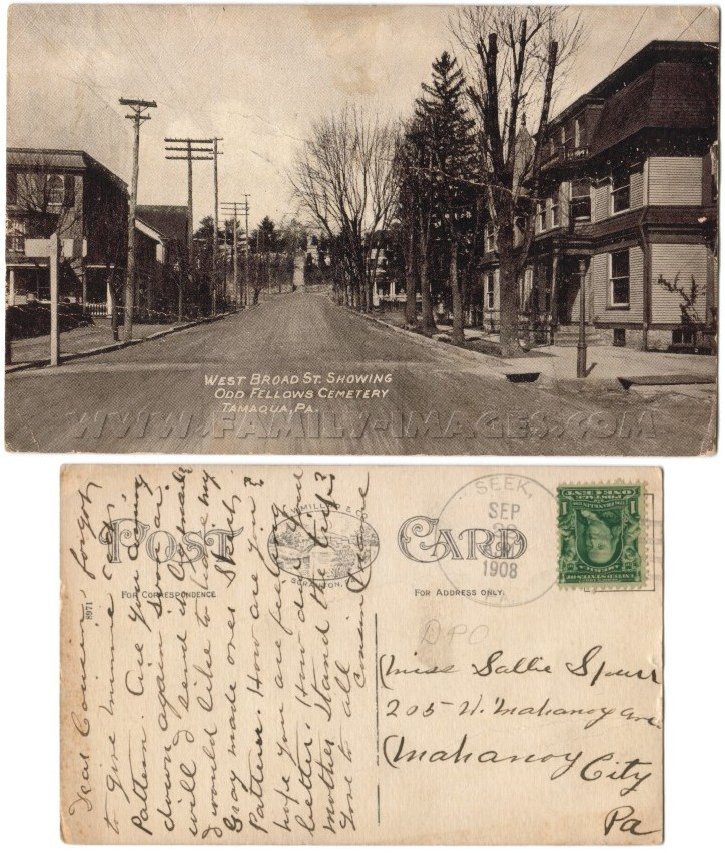 WEST BROAD ST. SHOWING
ODD FELLOWS CEMETERY
TAMAQUA, PA.
WWW.FAMILY-IMAGES.COM
POST CARD
FOR CORRESPONDENCE
FOR ADDRESS ONLY.
SCRANTON,
8971
SEEK,
SEP
1908
DPO
Dear Cousin forgot
to give minnie
Pattern. Are you coming
down again soon or
will I send it. Cy made
I would like to have my
Gray made ones Sketch
Pattern. How are you?
hope you are feeling
better. How does your
mother Stand the trip?
Love to all
Cousin
Miss Sallie Spurr
205 W. Mahanoy Ave
Mahanoy City
Pa